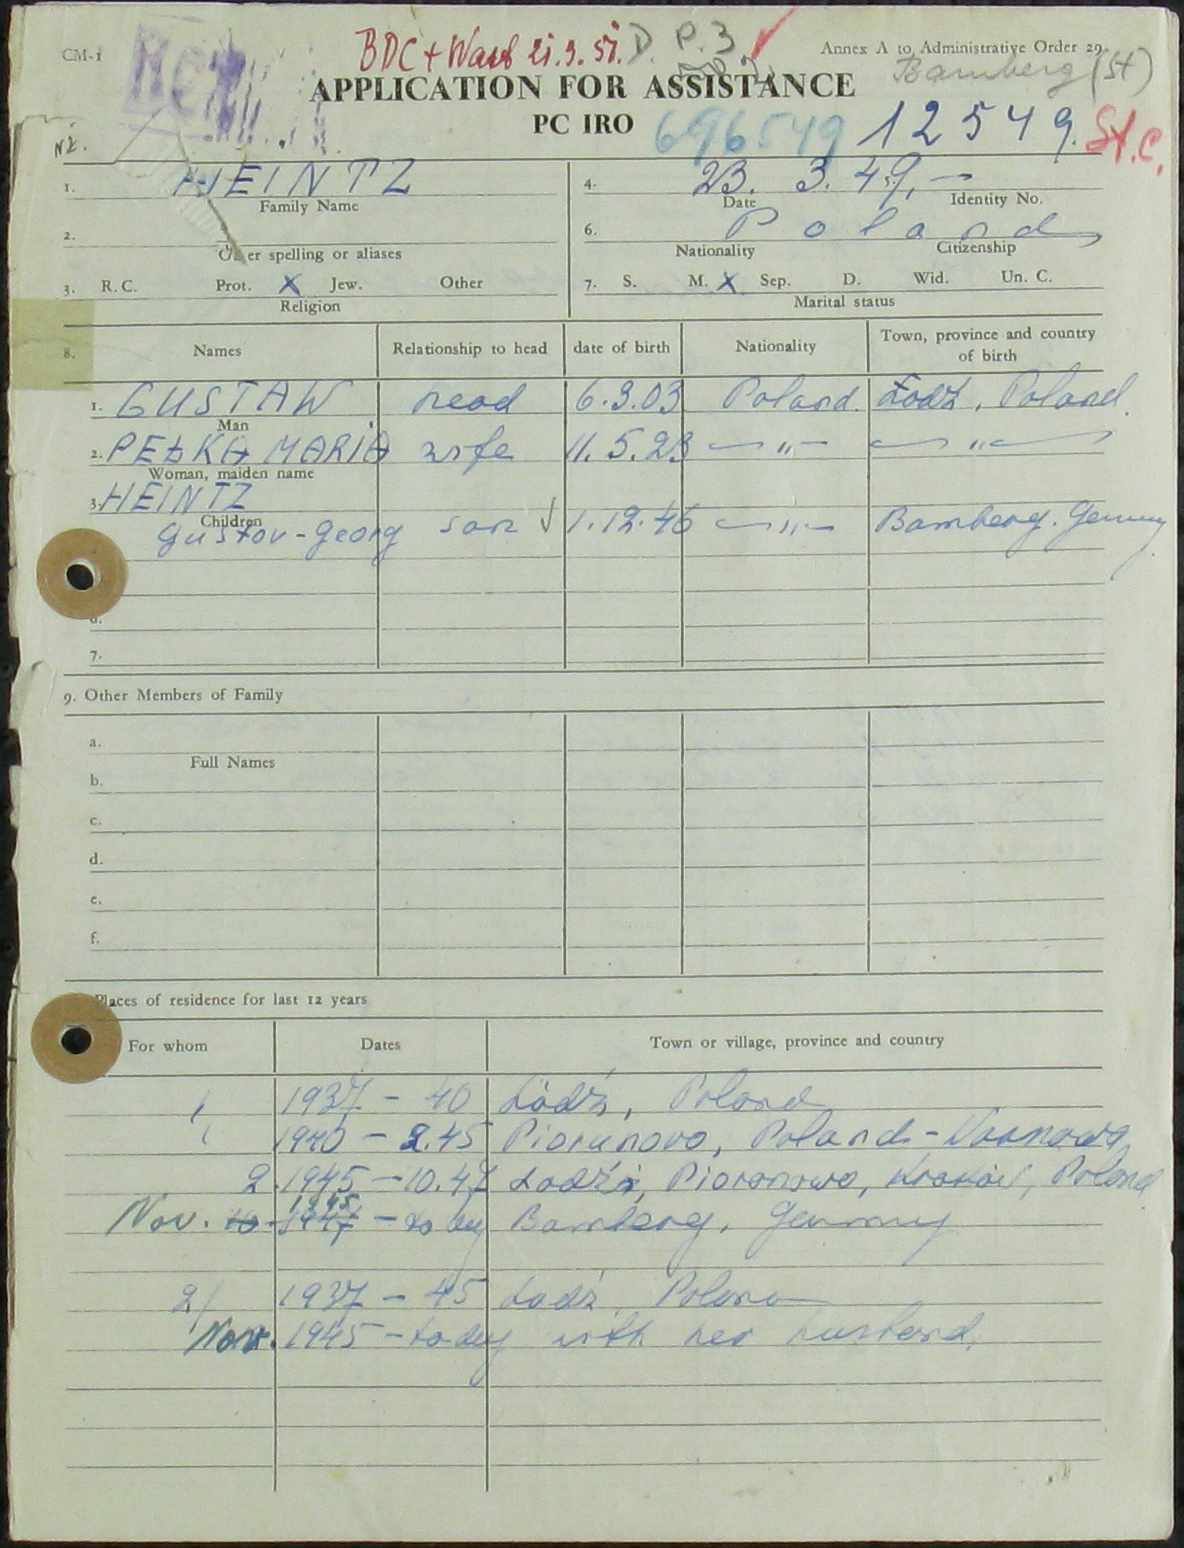 CM-1
BDC + Wast 21.3.51. D. P. 3
Annex A to Administrative Order 29
Bamberg (St)
APPLICATION FOR ASSISTANCE
PC IRO
696549 12549. St.c.
HEINTZ 23. 3. 49. –
1. Family Name
4. Date Identity No.
2. Other spelling or aliases
Poland
6. Nationality Citizenship
3. R.C. Prot. X Jew. Other
Religion
7. S. M. X Sep. D. Wid. Un. C.
Marital status
8. Names Relationship to head date of birth Nationality Town, province and country of birth
1. GUSTAW head 6.3.03 Poland. Łodź, Poland.
Man
2. PEŁKA MARIA wife 11.5.23 — " — — " —
Woman, maiden name
3. HEINTZ
Children
Gustav-Georg son √ 1.12.46 — " — Bamberg. Germany
7.
9. Other Members of Family
a.
Full Names
b.
c.
d.
e.
f.
Places of residence for last 12 years
For whom Dates Town or village, province and country
1937 - 40 Łódź, Poland
1940 - 2.45 Piorunovo, Poland -
2.1945 - 10.47 Łodź, Pioronowo, Kraków, Poland
1945
Nov. 10. 1947 - today Bamberg, Germany
2/ 1937 - 45 Łodź, Poland
Nov. 1945 - today with her husband.